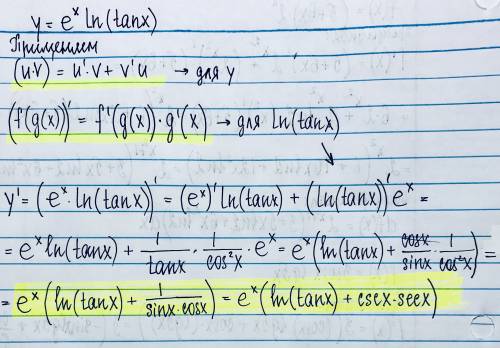 y = eˣ ln(tanx)
Применяем
(u·v)' = u'·v + v'u → для y
(f(g(x))' = f'(g(x))·g'(x) → для ln(tanx)
↘
y' = (eˣ·ln(tanx))' = (eˣ)' ln(tanx) + (ln(tanx))' eˣ =
= eˣ ln(tanx) + 1/tanx · 1/cos²x · eˣ = eˣ (ln(tanx) + cosx/sinx · 1/cos²x) =
= eˣ (ln(tanx) + 1/sinx·cosx) = eˣ (ln(tanx) + cscx·secx)